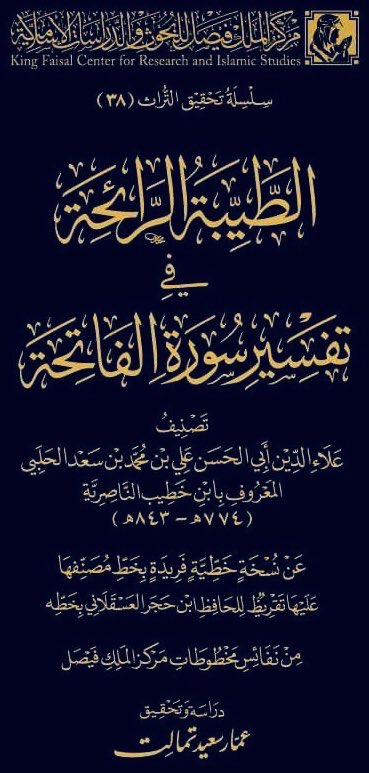 مركز الملك فيصل للبحوث والدراسات الإسلامية
King Faisal Center for Research and Islamic Studies
سِلْسِلَةُ تَحْقِيقِ التُّرَاث (٣٨)
الطَّيِّبَةُ الرَّائِحَة
فِي
تَفْسِيرِ سُورَةِ الفَاتِحَة
تَصْنِيفُ
عَلَاءِ الدِّيْنِ أَبِي الحَسَن عَلِي بْنِ مُحَمَّد بْنِ سَعْد الحَلَبِي
المَعْرُوفِ بِابْنِ خَطِيبِ النَّاصِرِيَّة
(٧٧٤هـ - ٨٤٣هـ)
عَنْ نُسْخَةٍ خَطِّيَّةٍ فَرِيدَةٍ بِخَطِّ مُصَنِّفِهَا
عَلَيْهَا تَقْرِيظٌ لِلحَافِظِ ابْن حَجَر العَسْقَلَانِي بِخَطِّه
مِنْ نَفَائِسِ مَخْطُوطَاتِ مَرْكَزِ المَلِكِ فَيْصَل
دِرَاسَة وَتَحْقِيق
عمّار سعيد تمالت